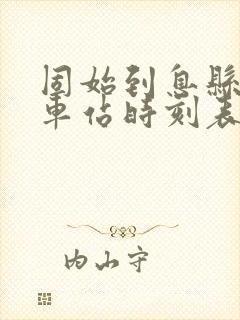 固始到息縣
車佔時刻表
内山守